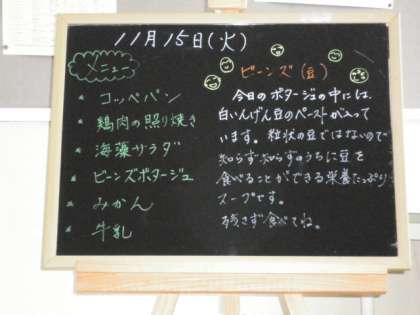 11月15日(火)
メニュー
* コッペパン
* 鶏肉の照り焼き
* 海藻サラダ
* ビーンズポタージュ
* みかん
* 牛乳
ビーンズ(豆)
今日のポタージュの中には、
白いんげん豆のペーストが入って
います。粒状の豆ではないので
知らず知らずのうちに豆を
食べることができる栄養たっぷり
スープです。
残さず食べてね。